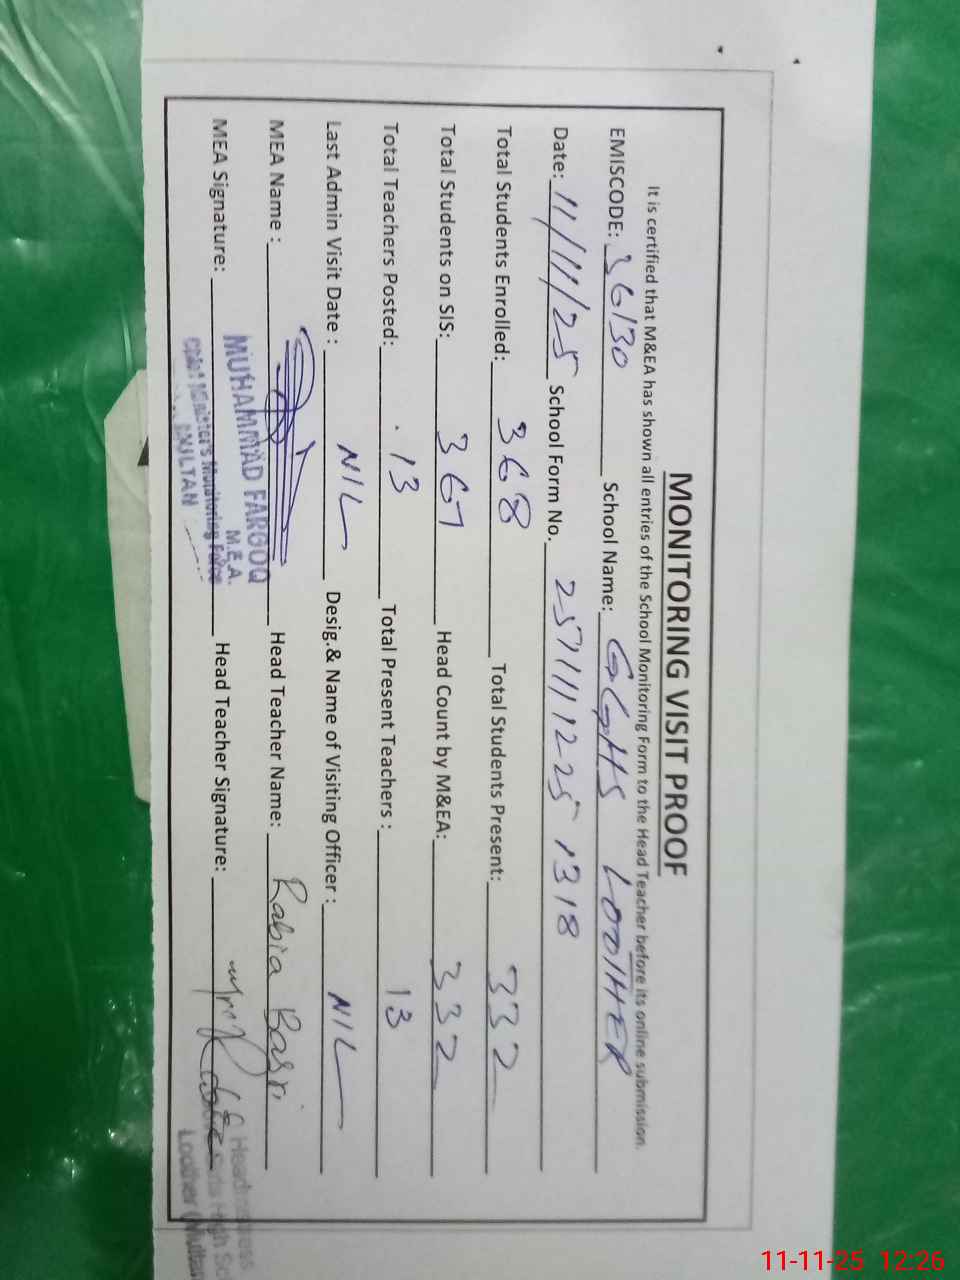 MONITORING VISIT PROOF
It is certified that M&EA has shown all entries of the School Monitoring Form to the Head Teacher before its online submission.
EMISCODE: 36130 School Name: GGHS LODHER
Date: 11/11/25 School Form No. 2511112251318
Total Students Enrolled: 368 Total Students Present: 332
Total Students on SIS: 367 Head Count by M&EA: 332
Total Teachers Posted: 13 Total Present Teachers : 13
Last Admin Visit Date : NIL Desig.& Name of Visiting Officer : NIL
MEA Name : Head Teacher Name: Rabia Basri
MUHAMMAD FAROOQ
M.E.A.
MEA Signature: Head Teacher Signature:
Chief Minister's Monitoring Force
MULTAN
Headmistress
High Sc
Lodher (Multan
11-11-25 12:26